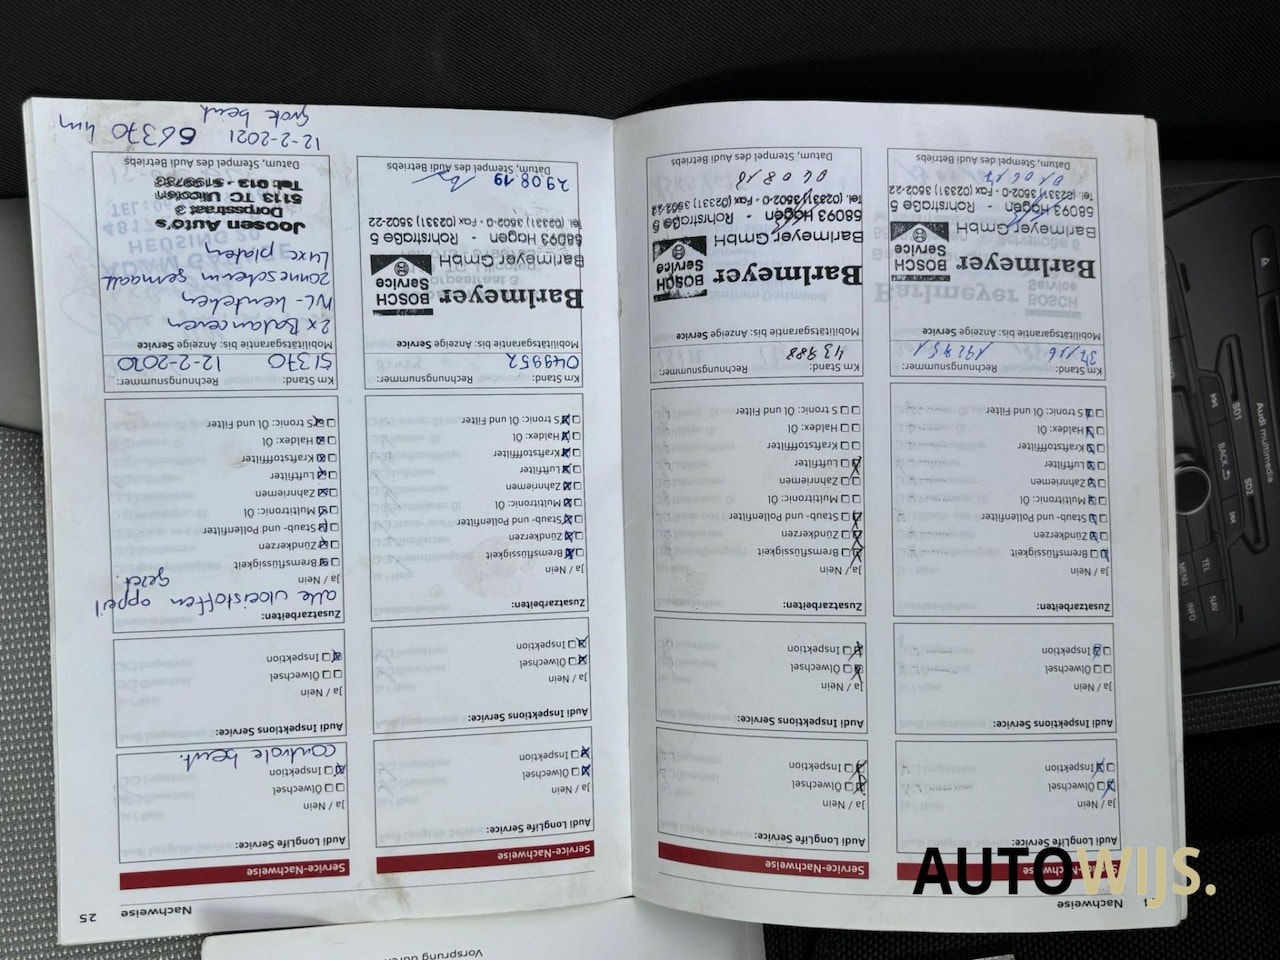 Nachweise
Service-Nachweise
Audi LongLife Service:
Ja / Nein
Ölwechsel
Inspektion
Audi Inspektions Service:
Ja / Nein
Ölwechsel
Inspektion
Zusatzarbeiten:
Ja / Nein
Bremsflüssigkeit
Zündkerzen
Staub- und Pollenfilter
Multitronic: Öl
Zahnriemen
Luftfilter
Kraftstofffilter
Haldex: Öl
S tronic: Öl und Filter
Km Stand: Rechnungsnummer:
Mobilitätsgarantie bis: Anzeige Service
Barlmeyer
BOSCH
Service
Barlmeyer GmbH
58093 Hagen - Rohrstraße 5
Tel. (02331) 3502-0 - Fax (02331) 3502-22
Datum, Stempel des Audi Betriebs
Service-Nachweise
Audi LongLife Service:
Ja / Nein
Ölwechsel
Inspektion
Audi Inspektions Service:
Ja / Nein
Ölwechsel
Inspektion
Zusatzarbeiten:
Ja / Nein
Bremsflüssigkeit
Zündkerzen
Staub- und Pollenfilter
Multitronic: Öl
Zahnriemen
Luftfilter
Kraftstofffilter
Haldex: Öl
S tronic: Öl und Filter
Km Stand: Rechnungsnummer:
43988
Mobilitätsgarantie bis: Anzeige Service
Barlmeyer
BOSCH
Service
Barlmeyer GmbH
58093 Hagen - Rohrstraße 5
Tel. (02331) 3502-0 - Fax (02331) 3502-22
Datum, Stempel des Audi Betriebs
Nachweise 25
Service-Nachweise
Audi LongLife Service:
Ja / Nein
Ölwechsel
Inspektion
Audi Inspektions Service:
Ja / Nein
Ölwechsel
Inspektion
Zusatzarbeiten:
Ja / Nein
Bremsflüssigkeit
Zündkerzen
Staub- und Pollenfilter
Multitronic: Öl
Zahnriemen
Luftfilter
Kraftstofffilter
Haldex: Öl
S tronic: Öl und Filter
Km Stand: Rechnungsnummer:
049952
Mobilitätsgarantie bis: Anzeige Service
Barlmeyer
BOSCH
Service
Barlmeyer GmbH
58093 Hagen - Rohrstraße 5
Tel. (02331) 3502-0 - Fax (02331) 3502-22
29.08.19
Datum, Stempel des Audi Betriebs
Service-Nachweise
Audi LongLife Service:
Ja / Nein
Ölwechsel
Inspektion
controle beurt.
Audi Inspektions Service:
Ja / Nein
Ölwechsel
Inspektion
Zusatzarbeiten:
alle vloeistoffen
Ja / Nein
Bremsflüssigkeit
Zündkerzen
Staub- und Pollenfilter
Multitronic: Öl
Zahnriemen
Luftfilter
Kraftstofffilter
Haldex: Öl
S tronic: Öl und Filter
Km Stand: Rechnungsnummer:
51370 12-2-2020
Mobilitätsgarantie bis: Anzeige Service
2x Balanceren
NL-kenteken
zonnescherm gemaakt
platen
Joosen Auto's
Dorpsstraat 3
5113 TC Ulicoten
Tel: 013 - 5199783
Datum, Stempel des Audi Betriebs
12-2-2021 56370 km
Grote beurt
Vorsprung durch
Audi multimedia
SD1
SD2
BACK
TEL
MENU
NAV
INFO
AUTOWIJS.